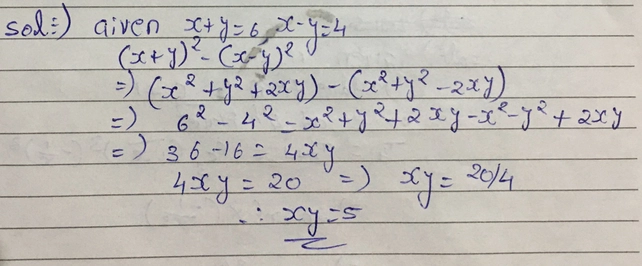 sol:⇒) Given x+y=6, x-y=4
(x+y)² - (x-y)²
=) (x²+y²+2xy) - (x²+y²-2xy)
=) 6² - 4² = x²+y²+2xy-x²-y²+2xy
=) 36-16 = 4xy
4xy = 20 =) xy = 20/4
∴ xy=5